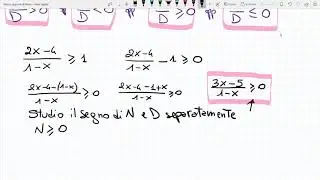 D ≥ 0 D ≤ 0
2x-4/1-x ≥ 1 2x-4/1-x -1 ≥ 0
2x-4-(1-x)/1-x ≥ 0 2x-4-1+x/1-x ≥ 0 3x-5/1-x ≥ 0
Studio il segno di N e D separatamente
N ≥ 0